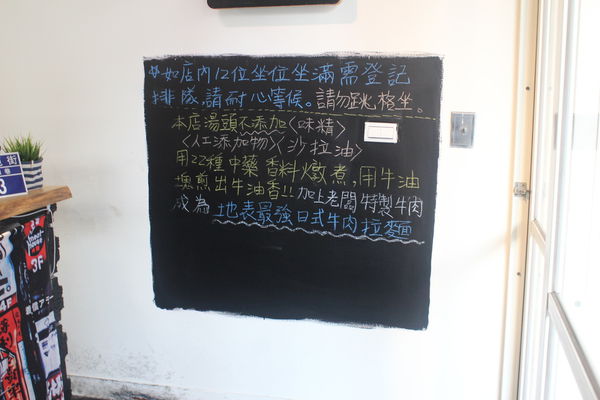 ※如店內12位坐位坐滿需登記
排隊,請耐心等候。請勿跳格坐。
本店湯頭不添加<味精>
<人工添加物><沙拉油>
用22種中藥香料燉煮,用牛油
塊煎出牛油香!!加上老闆特製牛肉
成為 地表最強日式牛肉拉麵
街
3
3F
4F